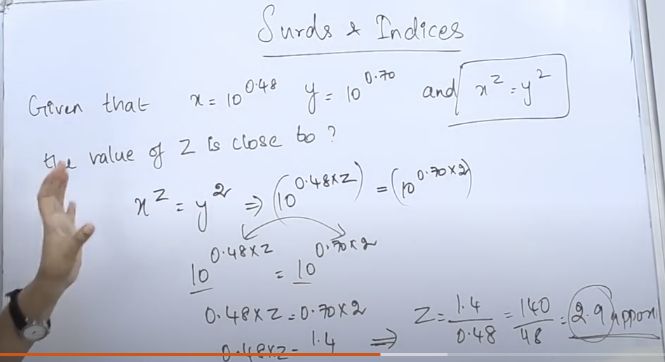 Surds & Indices
Given that x = 10^0.48 y = 10^0.70 and x^z = y^2
the value of z is close to ?
x^z = y^2 ⇒ (10^0.48×z) = (10^0.70×2)
10^0.48×z = 10^0.70×2
0.48×z = 0.70×2
0.48×z = 1.4 ⇒ z = 1.4/0.48 = 140/48 = 2.9 appox